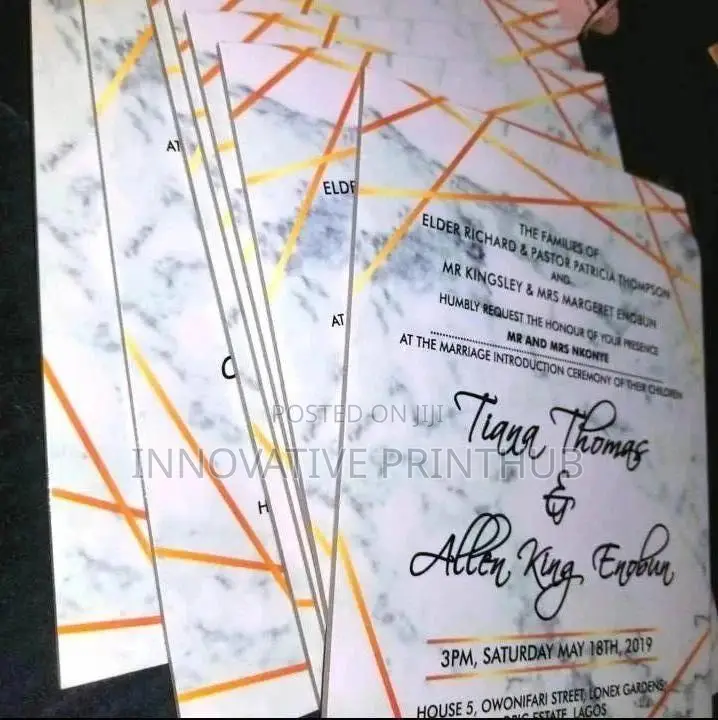 AT
ELDE
AT
C
H
THE FAMILIES OF
ELDER RICHARD & PASTOR PATRICIA THOMPSON
AND
MR KINGSLEY & MRS MARGERET ENOBUN
HUMBLY REQUEST THE HONOUR OF YOUR PRESENCE
MR AND MRS NKONYE
AT THE MARRIAGE INTRODUCTION CEREMONY OF THEIR CHILDREN
Tiana Thomas
&
Allen King Enobun
3PM, SATURDAY MAY 18TH, 2019
HOUSE 5, OWONIFARI STREET, LONEX GARDENS,
ESTATE, LAGOS
POSTED ON JIJI
INNOVATIVE PRINTHUB